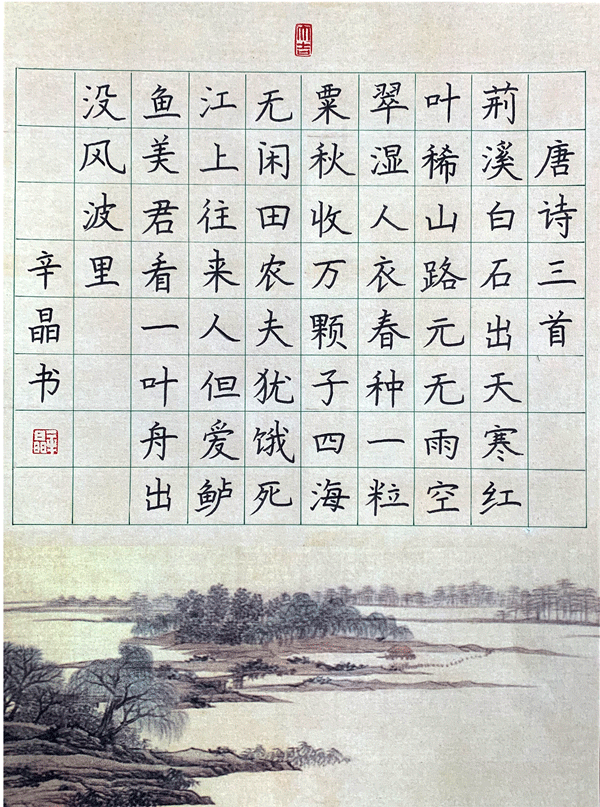 大吉
唐诗三首
荆溪白石出天寒红
叶稀山路元无雨空
翠湿人衣春种一粒
粟秋收万颗子四海
无闲田农夫犹饿死
江上往来人但爱鲈
鱼美君看一叶舟出
没风波里
辛晶书